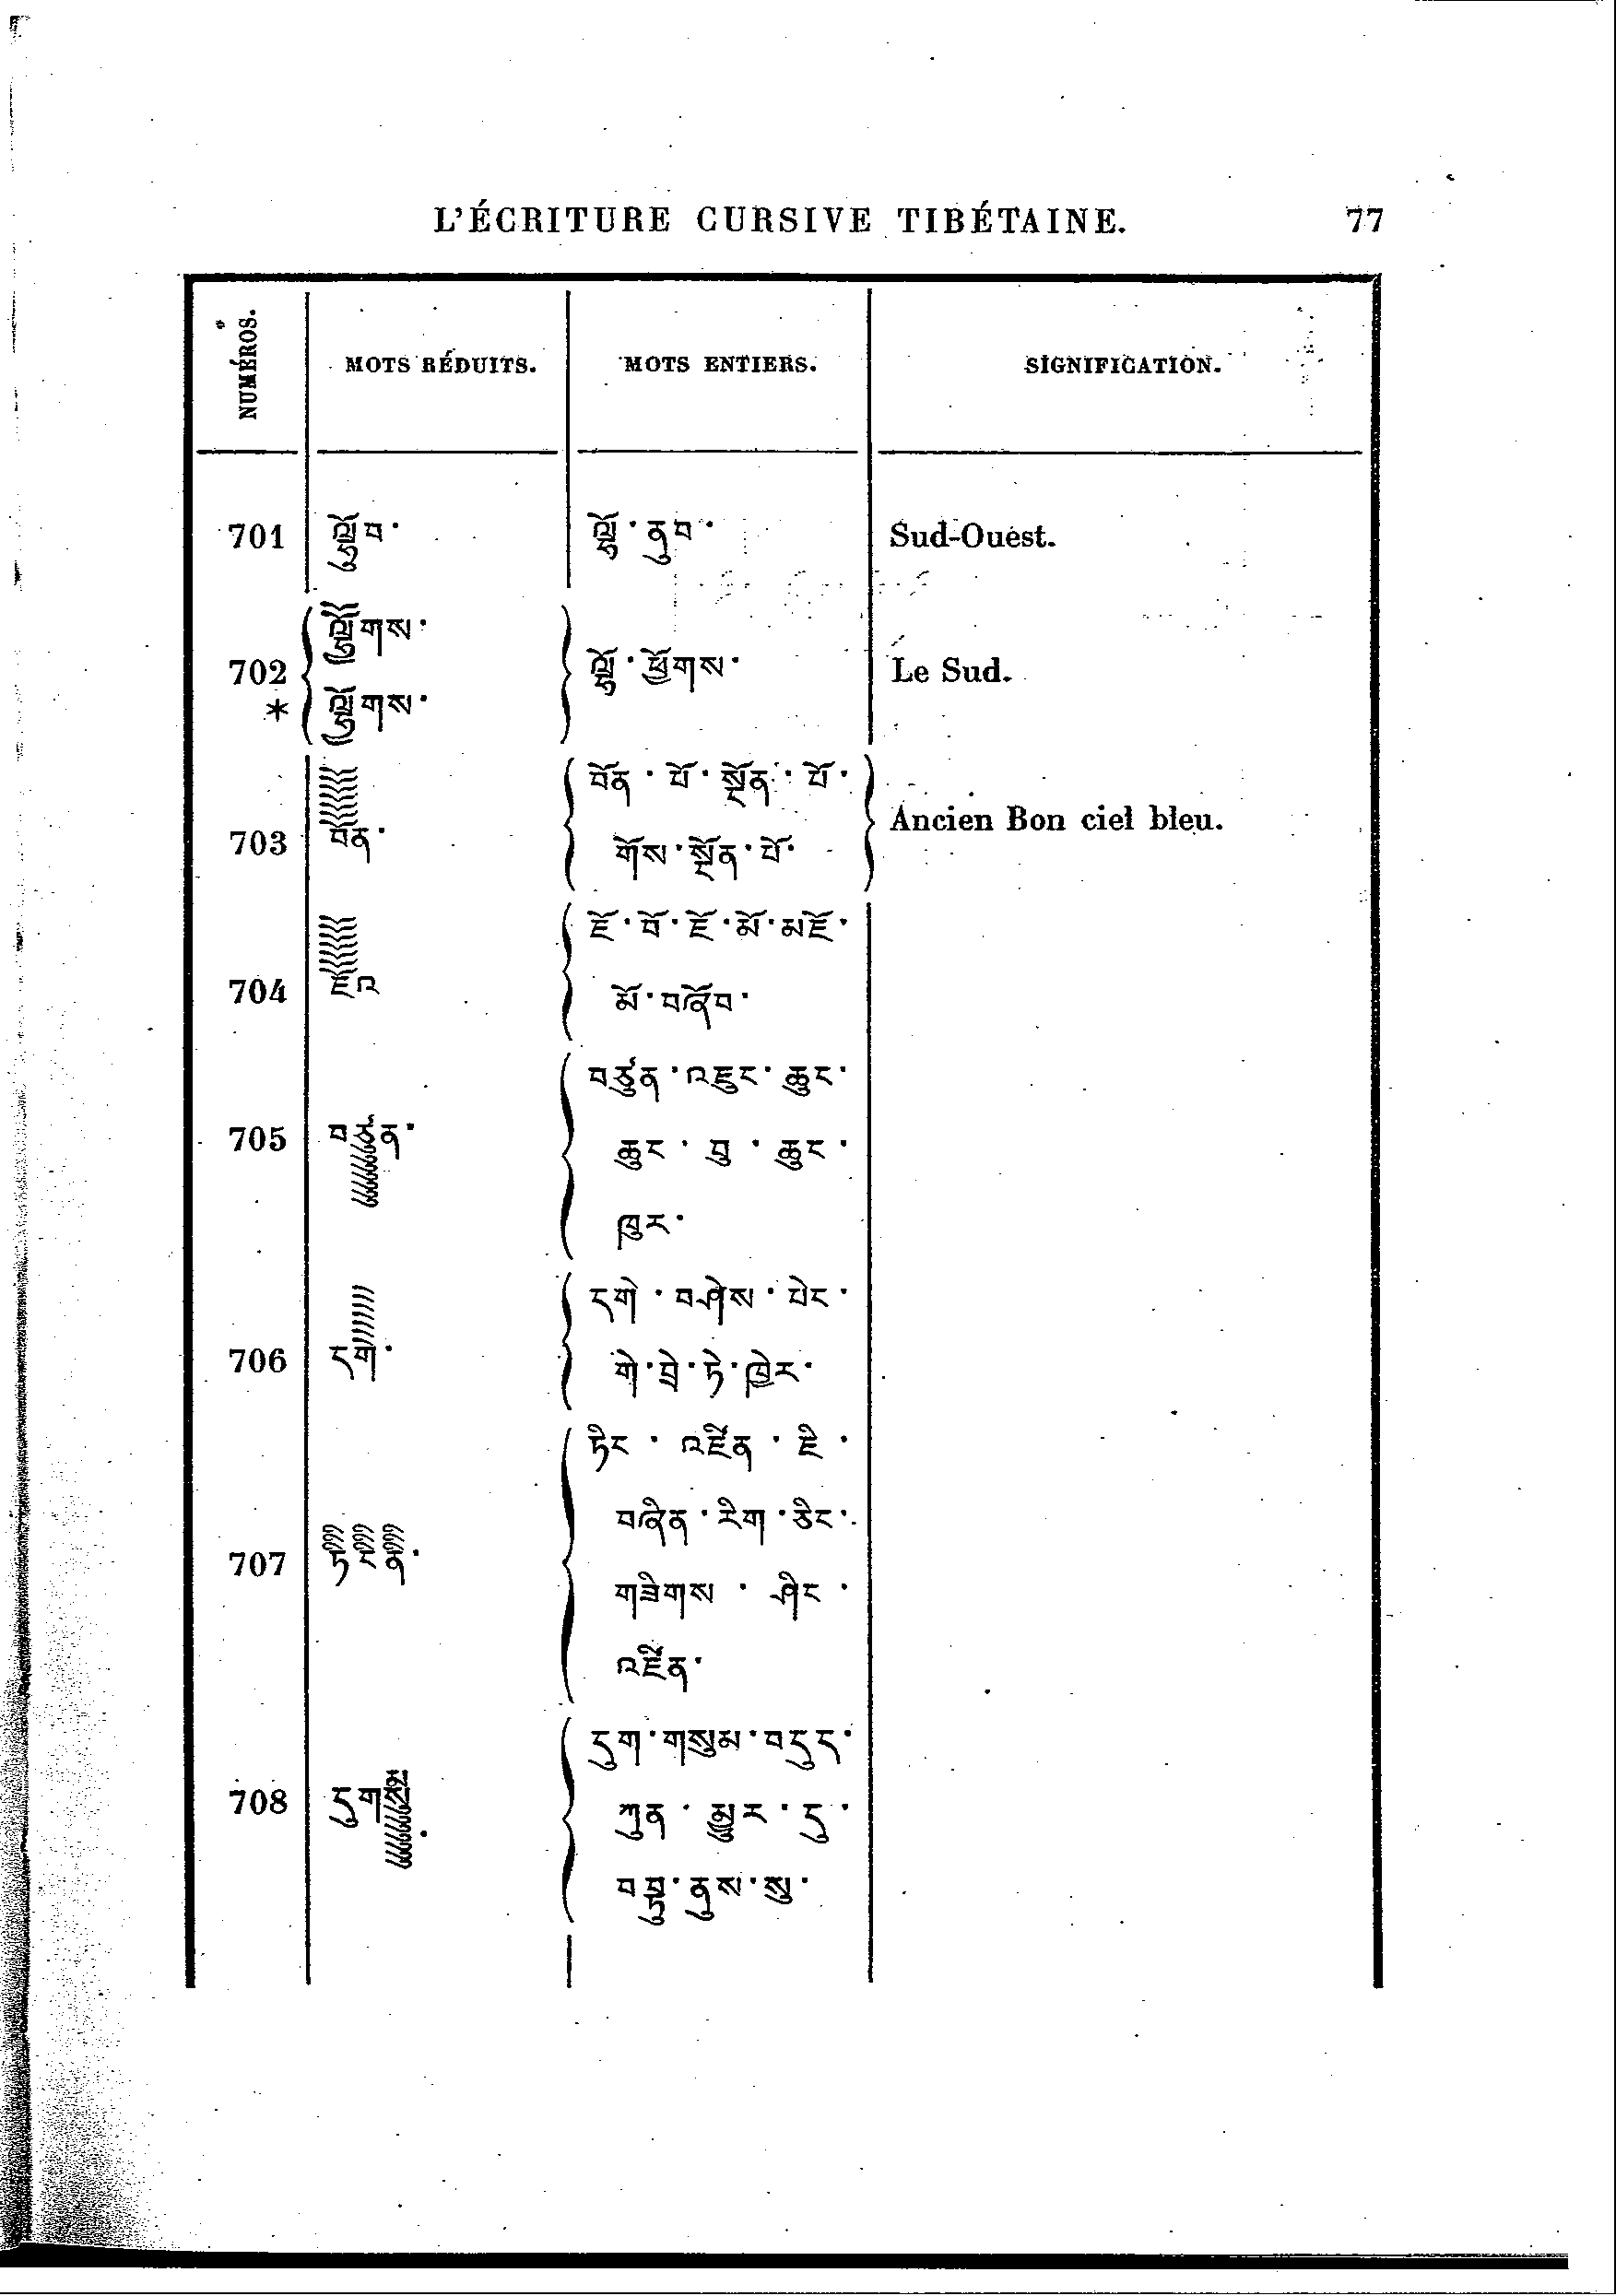 L'ÉCRITURE CURSIVE TIBÉTAINE. 77
NUMÉROS. MOTS RÉDUITS. MOTS ENTIERS. SIGNIFICATION.
701 ལྷོ་ནུབ་ Sud-Ouest.
702 ལྷོ་ཕྱོགས་ Le Sud.
*
703 བོན་པོ་སྔོན་པོ་ Ancien Bon ciel bleu.
གོས་སྔོན་པོ་
704 ཇོ་བོ་ཇོ་མོ་མཇོ་
མོ་བཞོབ་
705 བཙུན་འཇུང་ཆུང་
ཆུང་བུ་ཆུང་
ཁུར་
706 དགེ་བཤེས་པེང་
གེ་བྲེ་ཏེ་ཁྱེར་
707 ཏིང་འཛིན་ཇི་
བཞིན་རིག་ཅིང་
གཟིགས་ཤིང་
འཛིན་
708 དུག་གསུམ་བདུད་
ཀུན་མྱུར་དུ་
བསྲུ་ནུས་སུ་